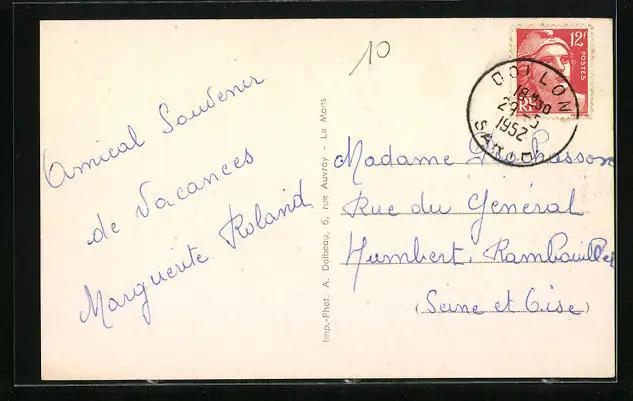 10
Amical Souvenir
de Vacances
Marguerite Roland
Imp.-Phot. A. Dolbeau, 6, rue Auvray - Le Mans
12F
POSTES
RF
DOLLON
18H30
29-5
1952
SARTHE
Madame
Rue du Général
Humbert, Rambouillet
(Seine et Oise)